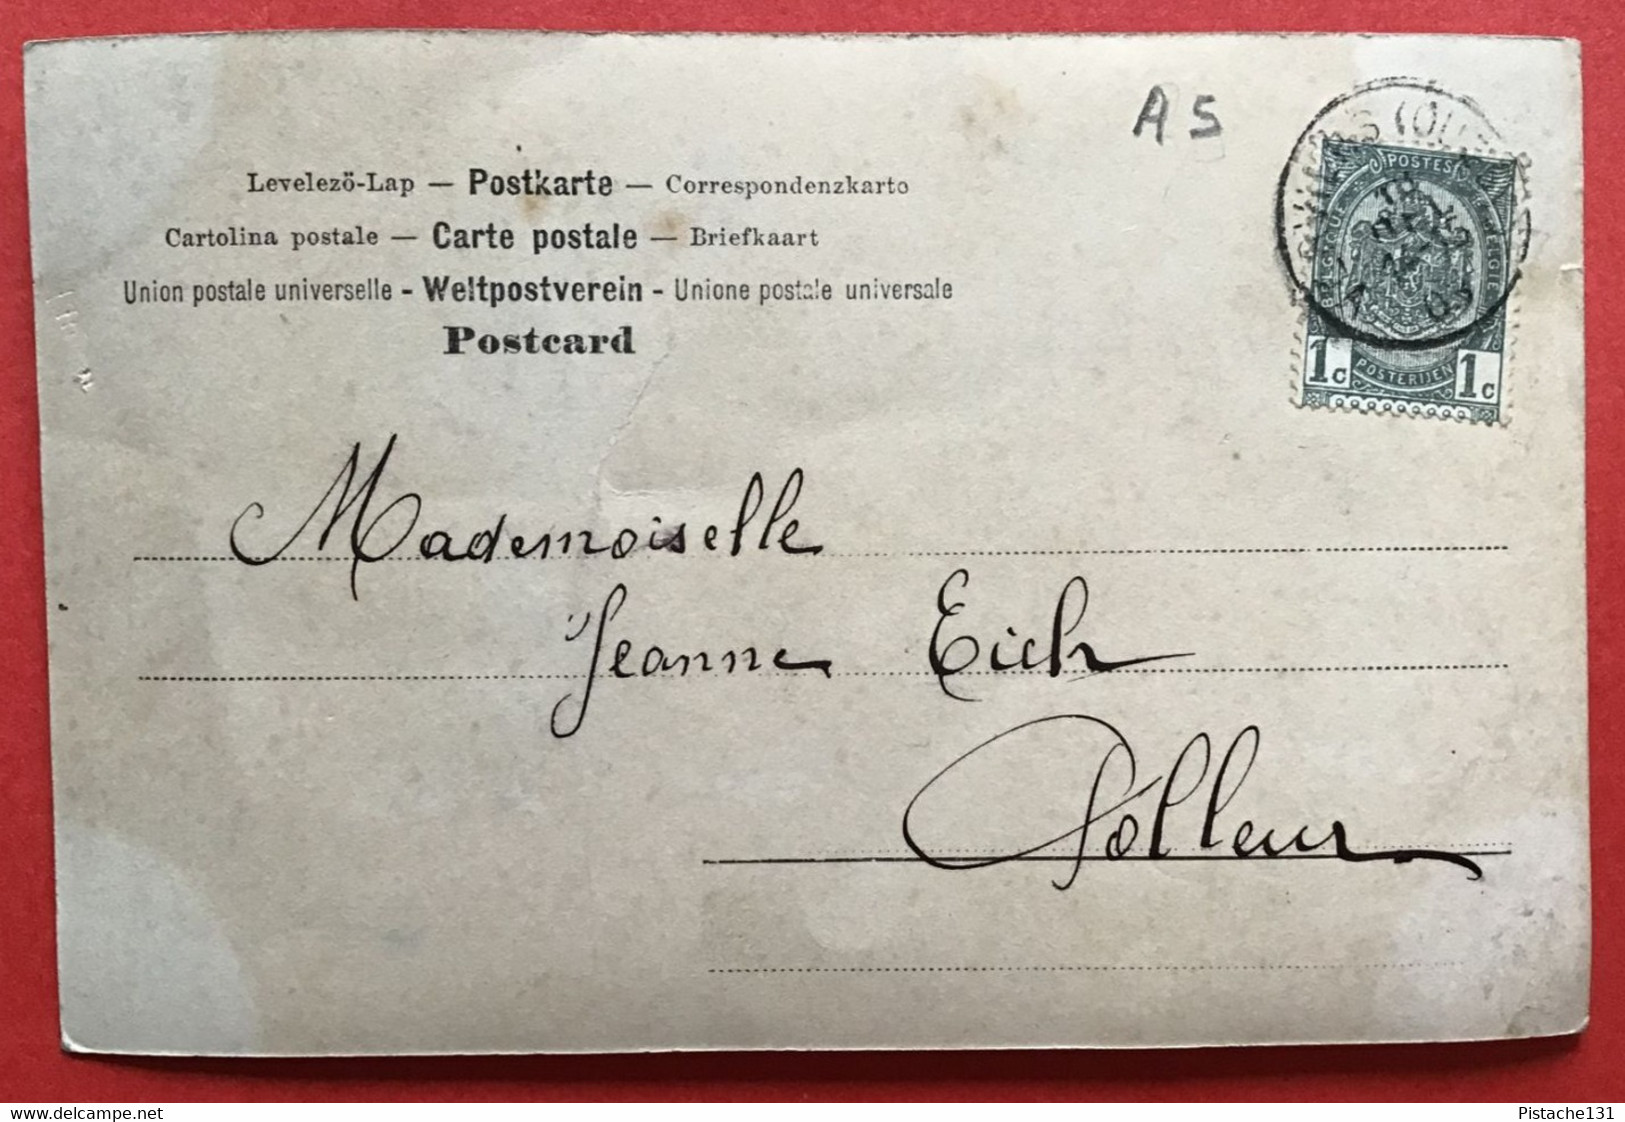 A S
Levelező-Lap — Postkarte — Correspondenzkarto
Cartolina postale — Carte postale — Briefkaart
Union postale universelle - Weltpostverein - Unione postale universale
Postcard
POSTES
BELGIQUE BELGIE
1c POSTERIJEN 1c
Mademoiselle
Jeanne Eich
Polleur
www.delcampe.net
Pistache131